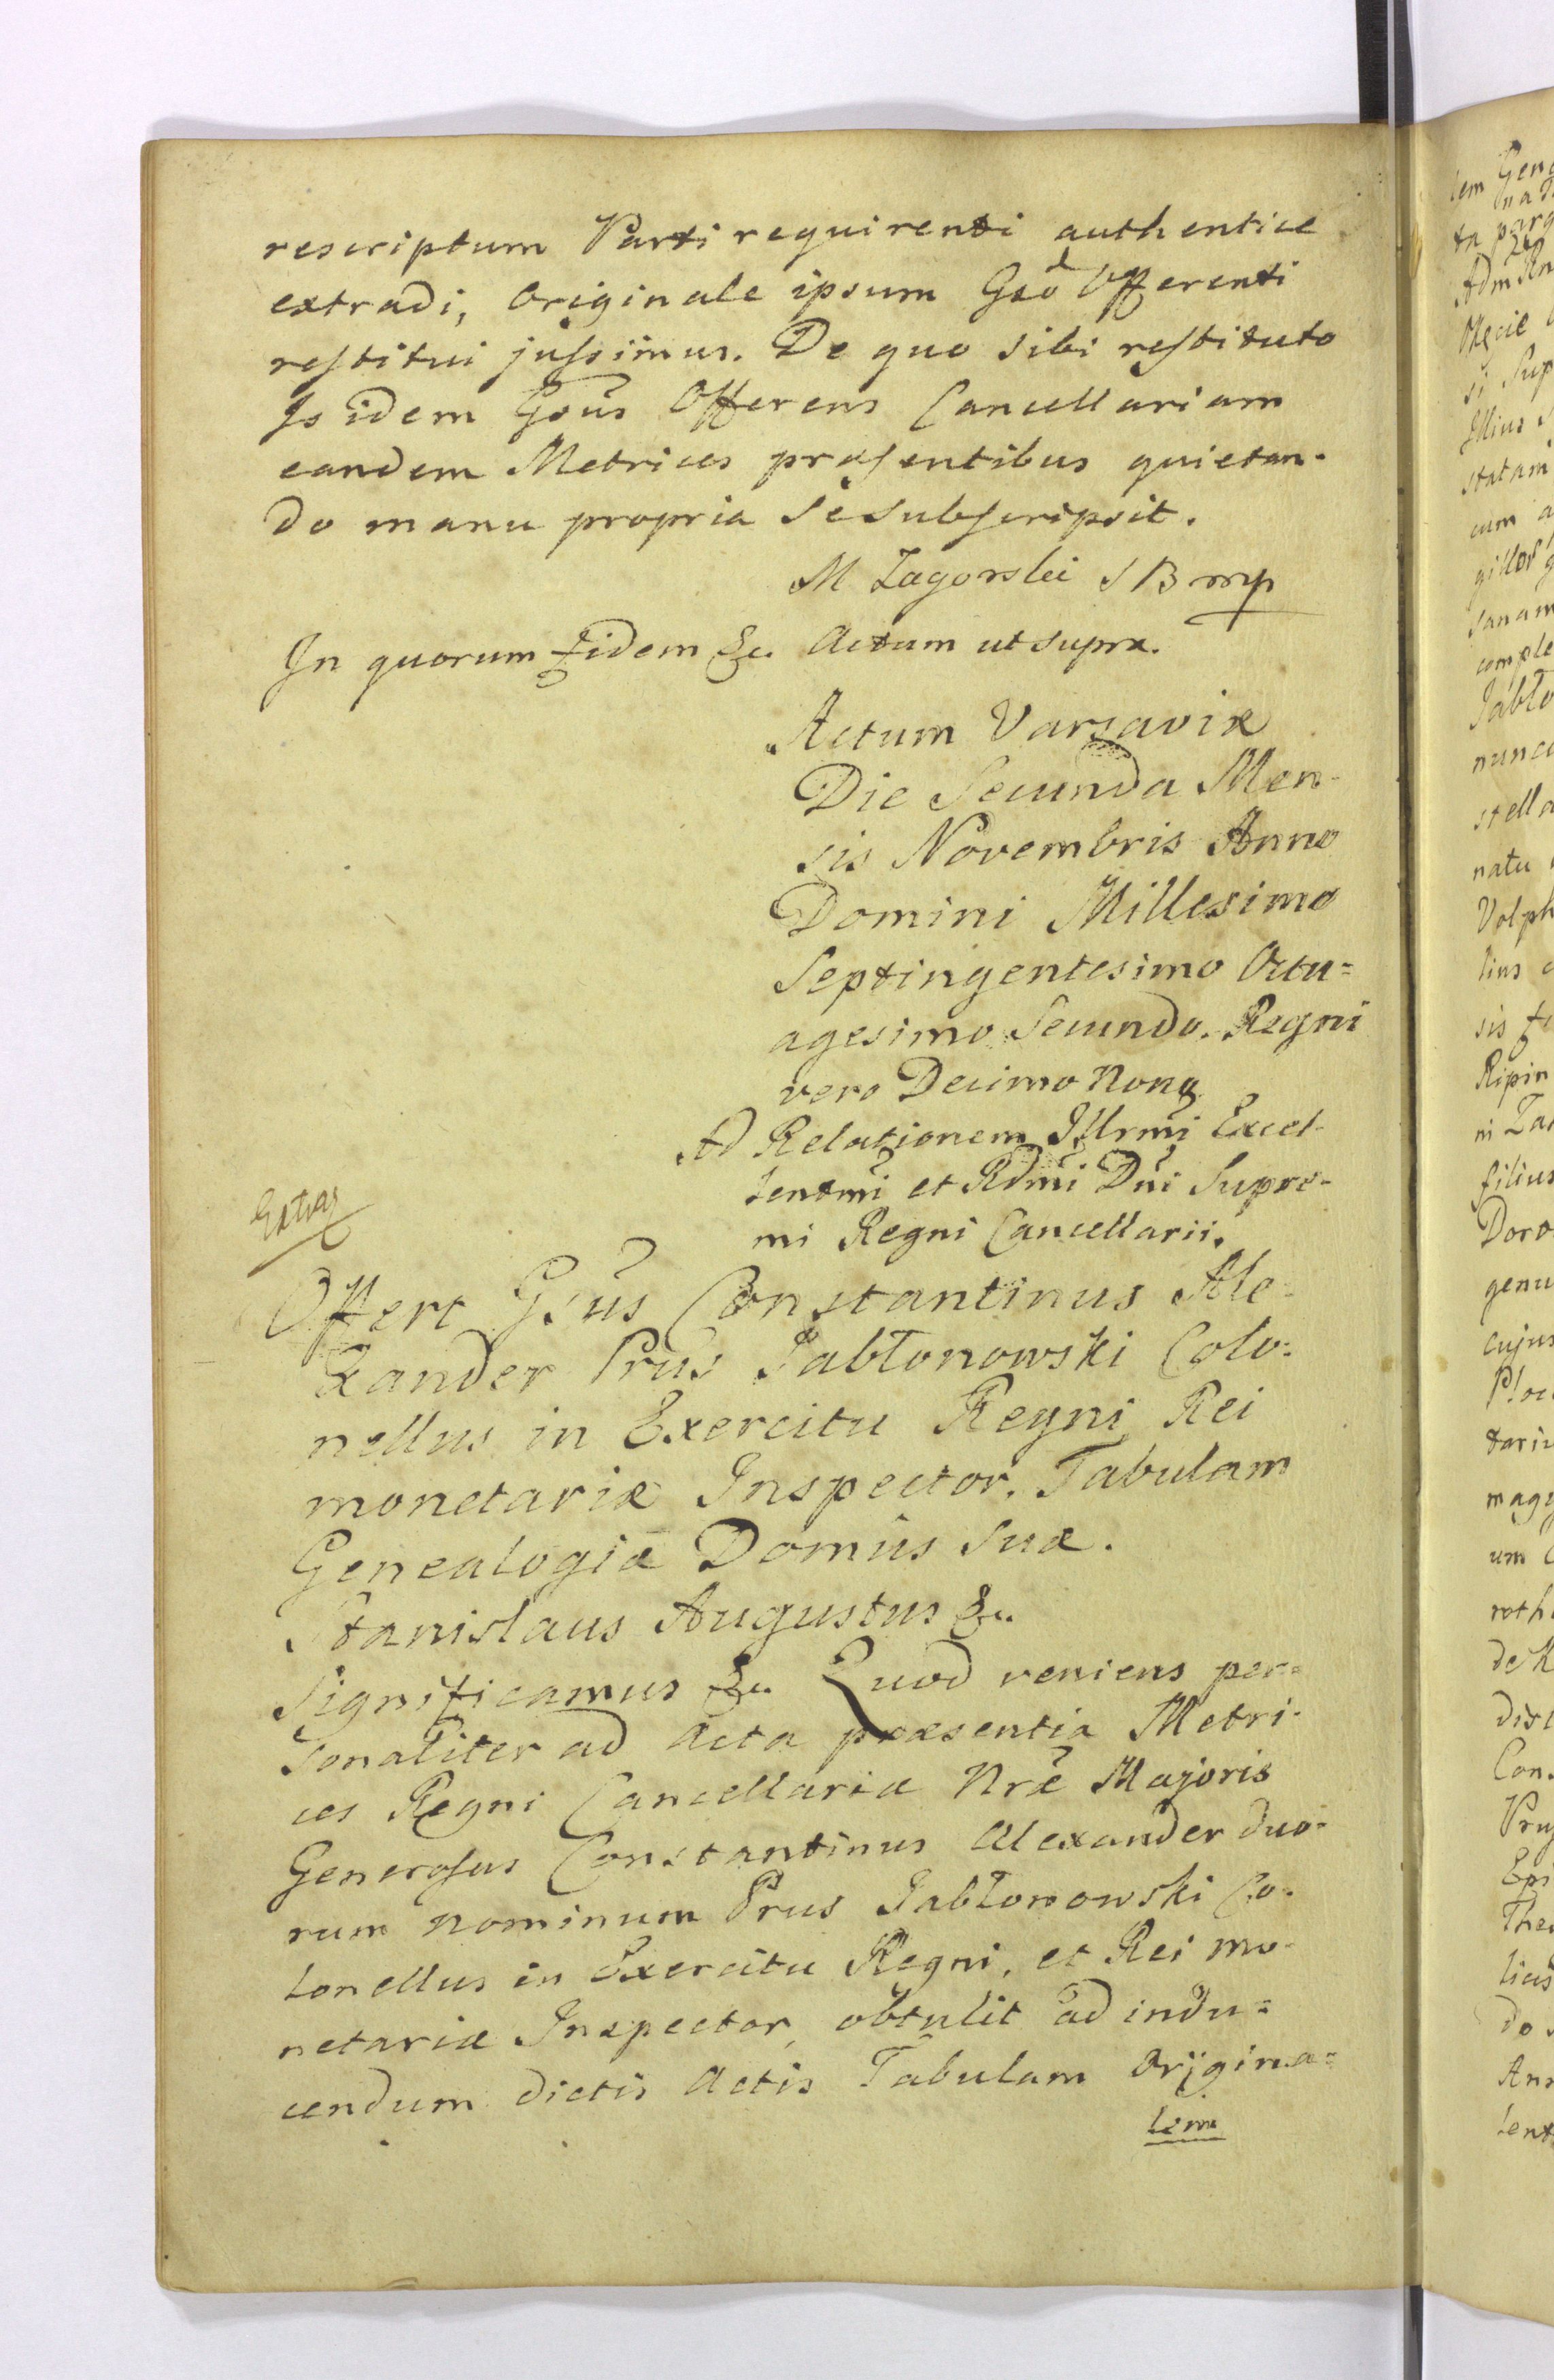 rescriptum Parti requirenti authentice
extradi, Originale ipsum Gsõ Offerenti
restitui jussimus. De quo sibi restituto
Is idem Gsus Offerens Cancellariam
eandem Metrices præsentibus quietan-
do manu propria se subscripsit.
M Zagorski SB mp
In quorum fidem &c. Actum ut supra.
Actum Varsaviæ
Die Secunda Men-
sis Novembris Anno
Domini Millesimo
Septingentesimo Octu=
agesimo Secundo. Regni
vero Decimo Nono
Ad Relationem Illrmi Excel-
lentmi et Rdmi Dni Supre-
mi Regni Cancellarii.
Offert Gsus Constantinus Ale-
xander Prus Jabłonowski Colo-
nellus in Exercitu Regni, Rei
monetariæ Inspector. Tabulam
Genealogiæ Domûs Suæ.
Stanislaus Augustus &c.
Significamus &c. Quod veniens per=
sonaliter ad Acta præsentia Metri-
ces Regni Cancellariæ Nræ Majoris
Generosus Constantinus Alexander duo-
rum nominum Prus Jabłonowski Co-
lonellus in Exercitu Regni, et Rei mo-
netariæ Inspector, obtulit ad indu=
cendum dictis Actis Tabulam Origina=
lem